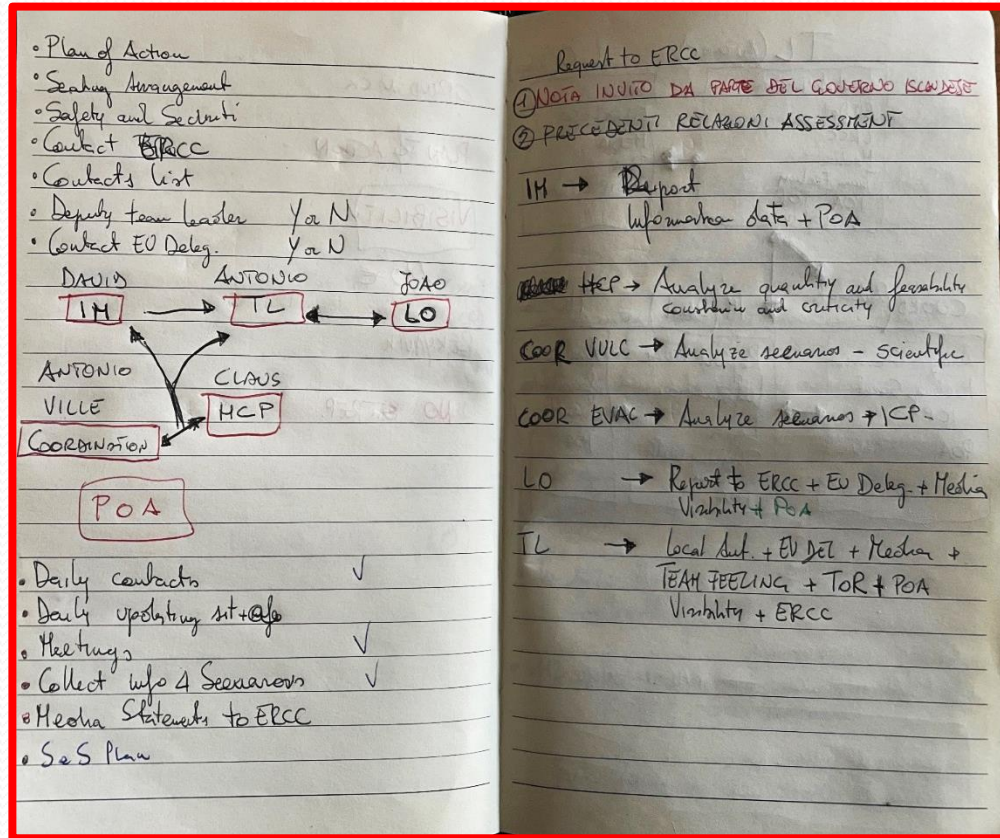 • Plan of Action
• Seating Arrangement
• Safety and Security
• Contact ERCC
• Contacts list
• Deputy team leader Y or N
• Contact EU Deleg. Y or N
DAVID ANTONIO JOAO
IM TL LO
ANTONIO CLAUS
VILLE HCP
COORDINATION
POA
• Daily contacts ✓
• Daily updating sit +
• Meetings ✓
• Collect info 4 Scenarios ✓
• Media Statements to ERCC
• SeS Plan
Request to ERCC
① NOTA INVITO DA PARTE DEL GOVERNO ISLANDESE
② PRECEDENTI RELAZIONI ASSESSMENT
IM → Report
Information data + POA
HCP → Analyze quantity and feasability
and criticity
COOR VULC → Analyze scenarios - Scientific
COOR EVAC → Analyze scenarios → ICP-
LO → Report to ERCC + EU Deleg. + Media
Visibility + POA
TL → Local Aut. + EU DEL + Media +
TEAM FEELING + TOR + POA
Visibility + ERCC